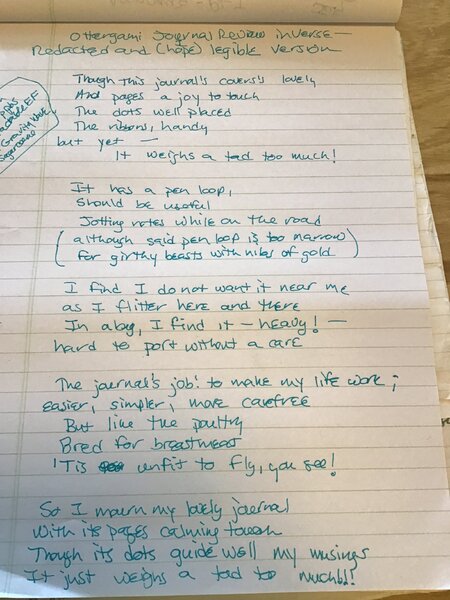 Ottergami Journal Review in Verse –
Redacted and (hope) legible version
Though this journal's covers's lovely
And pages a joy to touch
The dots well placed
The ribbons, handy
but yet —
It weighs a tad too much!
It has a pen loop,
Should be useful
Jotting notes while on the road
(although said pen loop is too narrow
for girthy beasts with nibs of gold)
I find I do not want it near me
as I flitter here and there
In a bag, I find it – heavy! –
hard to port without a care
The journal's job: to make my life work;
easier, simpler, more carefree
But like the poultry
Bred for breastmeat
'Tis unfit to fly, you see!
So I mourn my lovely journal
With its pages calming touch
Though its dots guide well my musings
It just weighs a tad to much!!